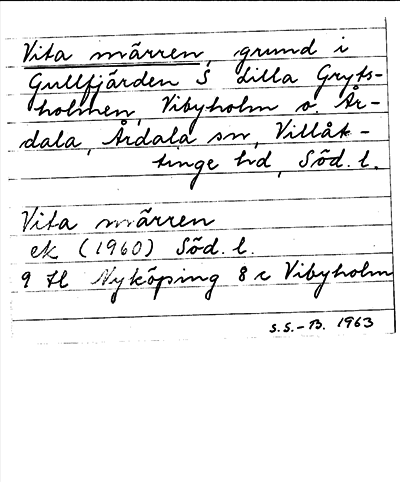 Vita märren, grund i
Gullfjärden S Lilla Gryts-
holmen, Vibyholm o. År-
dala, Årdala sn, Villåt-
tinge hd, Söd. l.
Vita märren
ek (1960) Söd. l.
9 H Nyköping 8 c Vibyholm
S.S.-B. 1963